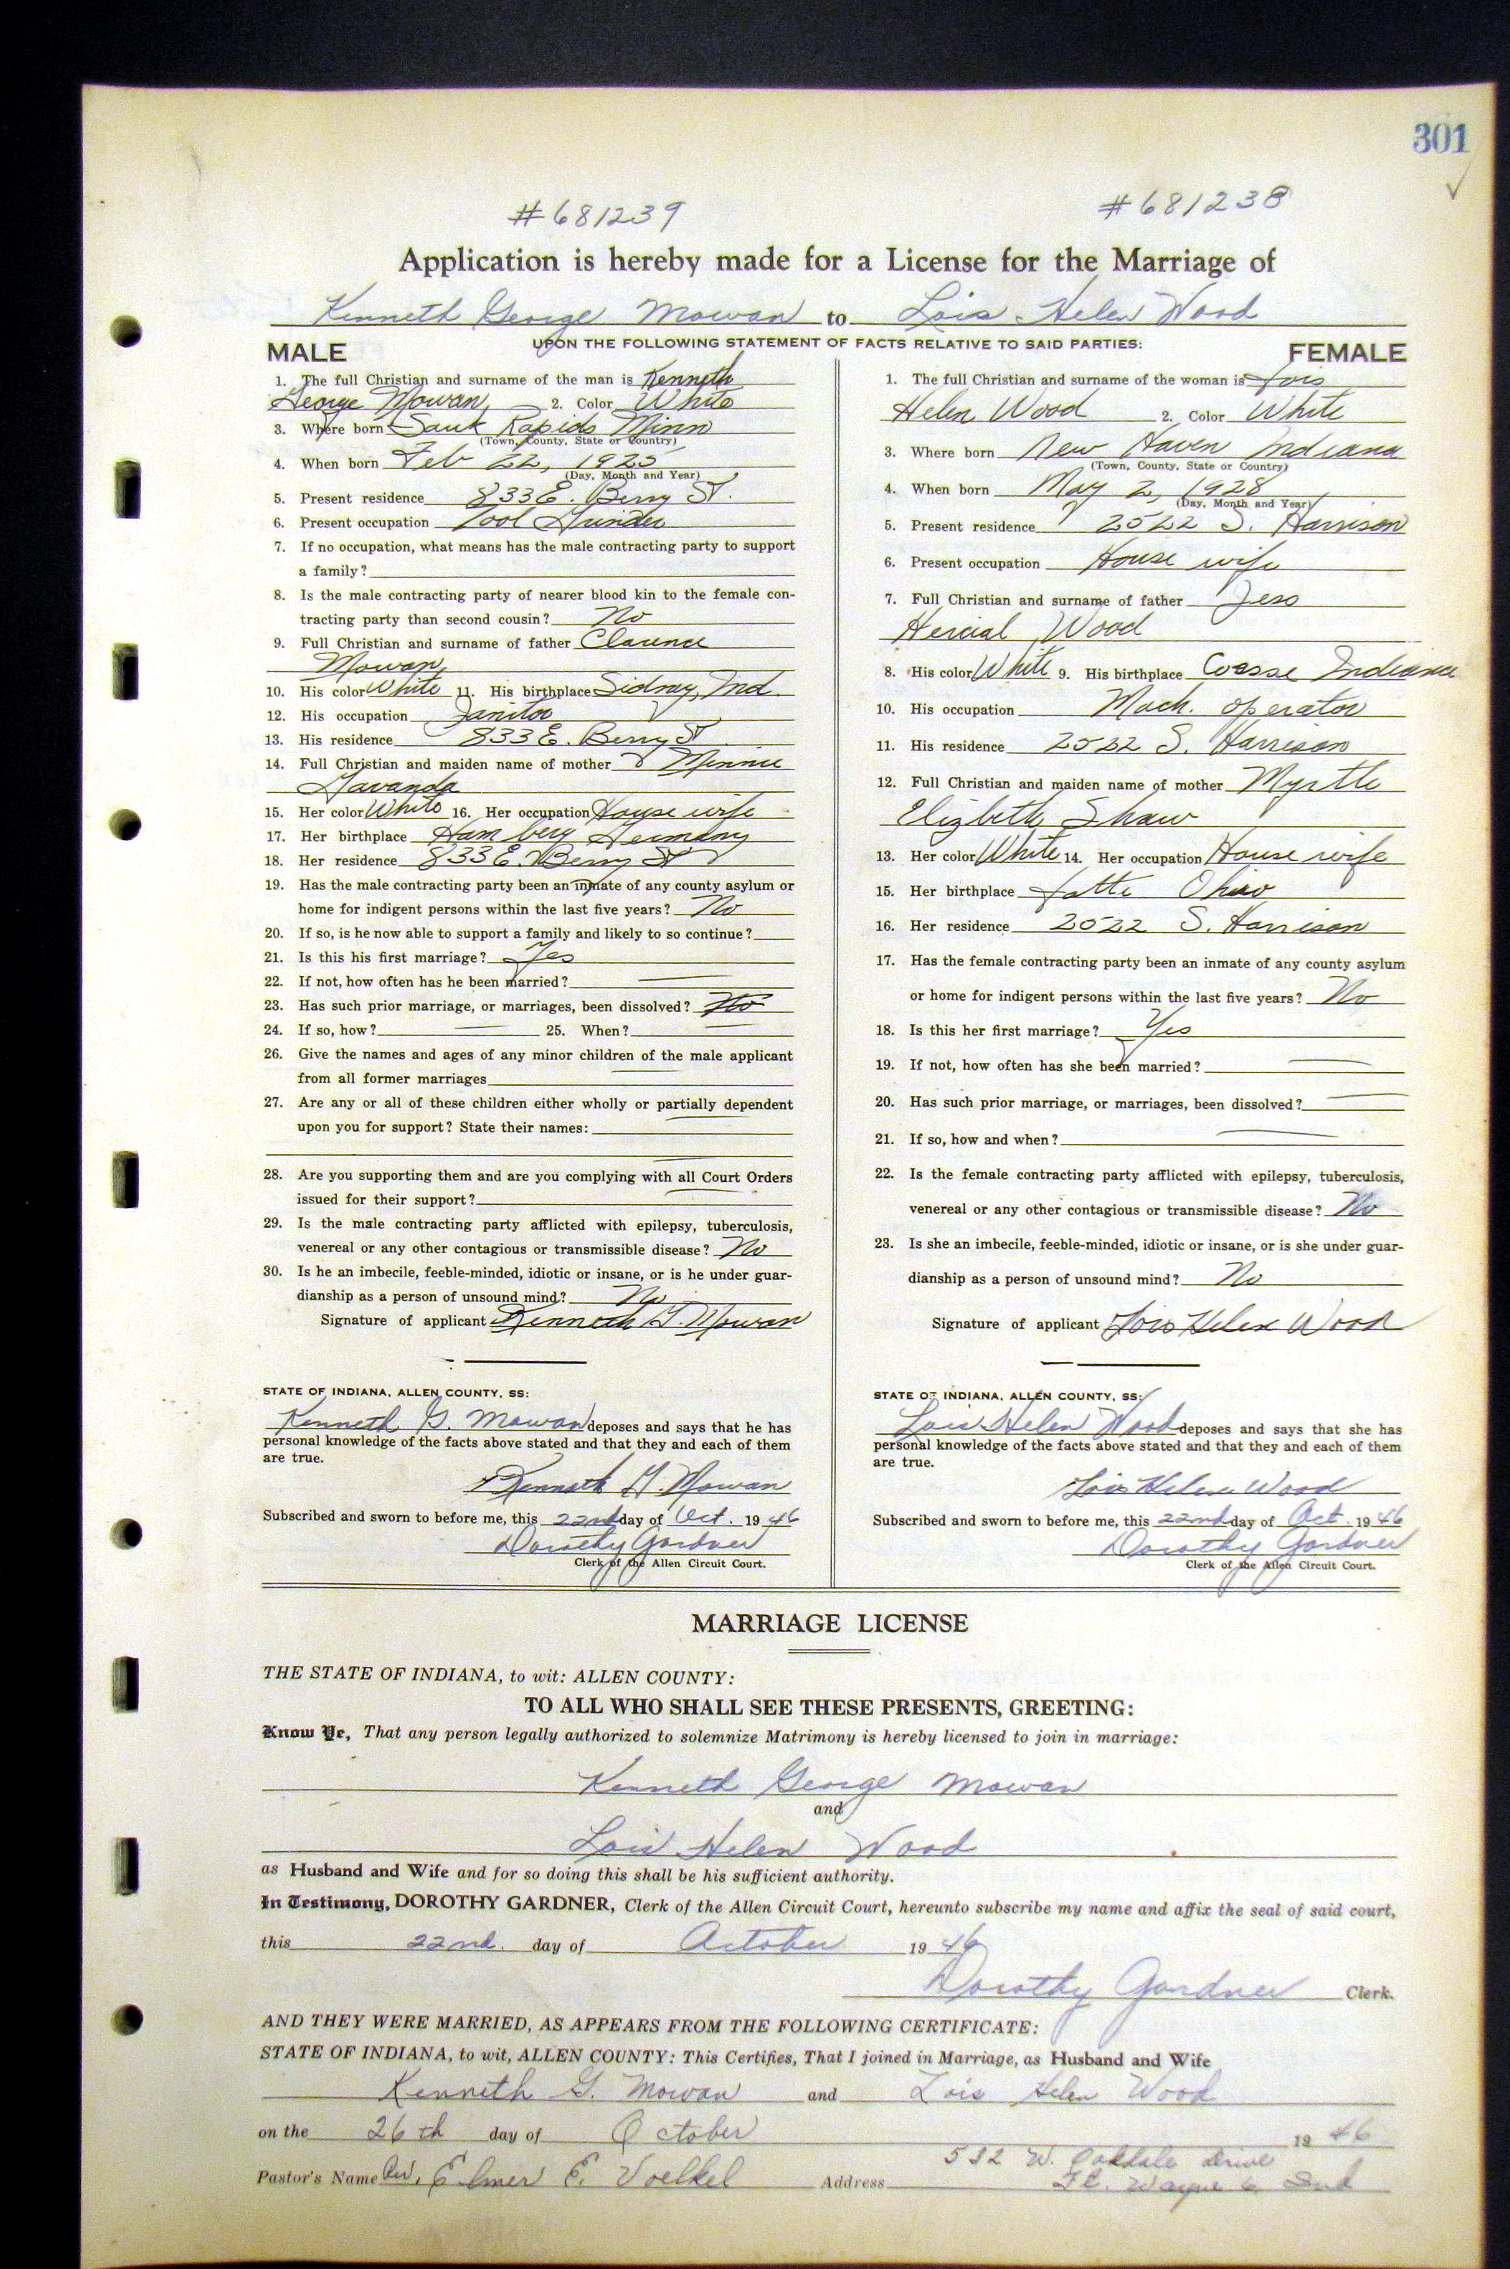 301
#681239 #681238
Application is hereby made for a License for the Marriage of
Kenneth George Mowan to Lois Helen Wood
UPON THE FOLLOWING STATEMENT OF FACTS RELATIVE TO SAID PARTIES:
MALE
1. The full Christian and surname of the man is Kenneth
George Mowan, 2. Color White
3. Where born Sauk Rapids Minn
(Town, County, State or Country)
4. When born Feb 22, 1925
(Day, Month and Year)
5. Present residence 833 E. Berry St.
6. Present occupation Tool Grinder
7. If no occupation, what means has the male contracting party to support
a family?
8. Is the male contracting party of nearer blood kin to the female con-
tracting party than second cousin? No
9. Full Christian and surname of father Clarence
Mowan
10. His color White 11. His birthplace Sidney, Ind.
12. His occupation Janitor
13. His residence 833 E. Berry St
14. Full Christian and maiden name of mother Minnie
15. Her color White 16. Her occupation House wife
17. Her birthplace Hamberg Germany
18. Her residence 833 E. Berry St
19. Has the male contracting party been an inmate of any county asylum or
home for indigent persons within the last five years? No
20. If so, is he now able to support a family and likely to so continue?
21. Is this his first marriage? Yes
22. If not, how often has he been married?
23. Has such prior marriage, or marriages, been dissolved? No
24. If so, how? 25. When?
26. Give the names and ages of any minor children of the male applicant
from all former marriages
27. Are any or all of these children either wholly or partially dependent
upon you for support? State their names:
28. Are you supporting them and are you complying with all Court Orders
issued for their support?
29. Is the male contracting party afflicted with epilepsy, tuberculosis,
venereal or any other contagious or transmissible disease? No
30. Is he an imbecile, feeble-minded, idiotic or insane, or is he under guar-
dianship as a person of unsound mind? No
Signature of applicant Kenneth G. Mowan
STATE OF INDIANA, ALLEN COUNTY, SS:
Kenneth G. Mowan deposes and says that he has
personal knowledge of the facts above stated and that they and each of them
are true.
Kenneth G. Mowan
Subscribed and sworn to before me, this 22nd day of Oct. 1946
Dorothy Gardner
Clerk of the Allen Circuit Court.
FEMALE
1. The full Christian and surname of the woman is Lois
Helen Wood 2. Color White
3. Where born New Haven Indiana
(Town, County, State or Country)
4. When born May 2, 1928
(Day, Month and Year)
5. Present residence 2522 S. Harrison
6. Present occupation House wife
7. Full Christian and surname of father Jess
Hercial Wood
8. His color White 9. His birthplace Coesse Indiana
10. His occupation Mach. operator
11. His residence 2522 S. Harrison
12. Full Christian and maiden name of mother Myrtle
Elizbeth Shaw
13. Her color White 14. Her occupation House wife
15. Her birthplace Latte Ohio
16. Her residence 2522 S. Harrison
17. Has the female contracting party been an inmate of any county asylum
or home for indigent persons within the last five years? No
18. Is this her first marriage? Yes
19. If not, how often has she been married?
20. Has such prior marriage, or marriages, been dissolved?
21. If so, how and when?
22. Is the female contracting party afflicted with epilepsy, tuberculosis,
venereal or any other contagious or transmissible disease? No
23. Is she an imbecile, feeble-minded, idiotic or insane, or is she under guar-
dianship as a person of unsound mind? No
Signature of applicant Lois Helen Wood
STATE OF INDIANA, ALLEN COUNTY, SS:
Lois Helen Wood deposes and says that she has
personal knowledge of the facts above stated and that they and each of them
are true.
Lois Helen Wood
Subscribed and sworn to before me, this 22nd day of Oct. 1946
Dorothy Gardner
Clerk of the Allen Circuit Court.
MARRIAGE LICENSE
THE STATE OF INDIANA, to wit: ALLEN COUNTY:
TO ALL WHO SHALL SEE THESE PRESENTS, GREETING:
Know Ye, That any person legally authorized to solemnize Matrimony is hereby licensed to join in marriage:
Kenneth George Mowan
and
Lois Helen Wood
as Husband and Wife and for so doing this shall be his sufficient authority.
In Testimony, DOROTHY GARDNER, Clerk of the Allen Circuit Court, hereunto subscribe my name and affix the seal of said court,
this 22nd. day of October 1946
Dorothy Gardner Clerk.
AND THEY WERE MARRIED, AS APPEARS FROM THE FOLLOWING CERTIFICATE:
STATE OF INDIANA, to wit, ALLEN COUNTY: This Certifies, That I joined in Marriage, as Husband and Wife
Kenneth G. Mowan and Lois Helen Wood
on the 26th day of October 1946
Pastor's Name Rev. Elmer E. Voelkel Address 532 W. Oakdale Drive
Ft. Wayne 6, Ind